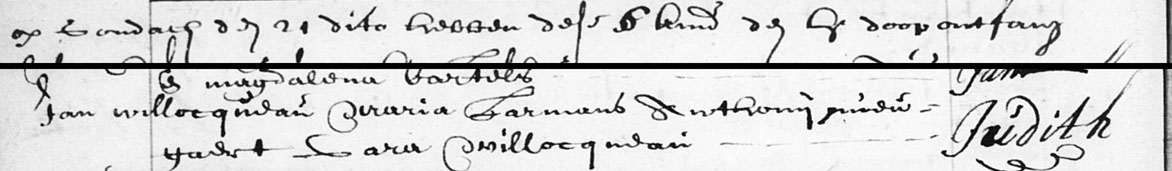 op Sondach den 21 dito hebben dese 6 kind den H doop ontfang
& magdalena Bartels
Jan willocqueau Maria Harmans Anthonij
gaert Sara Willocqueau Judith